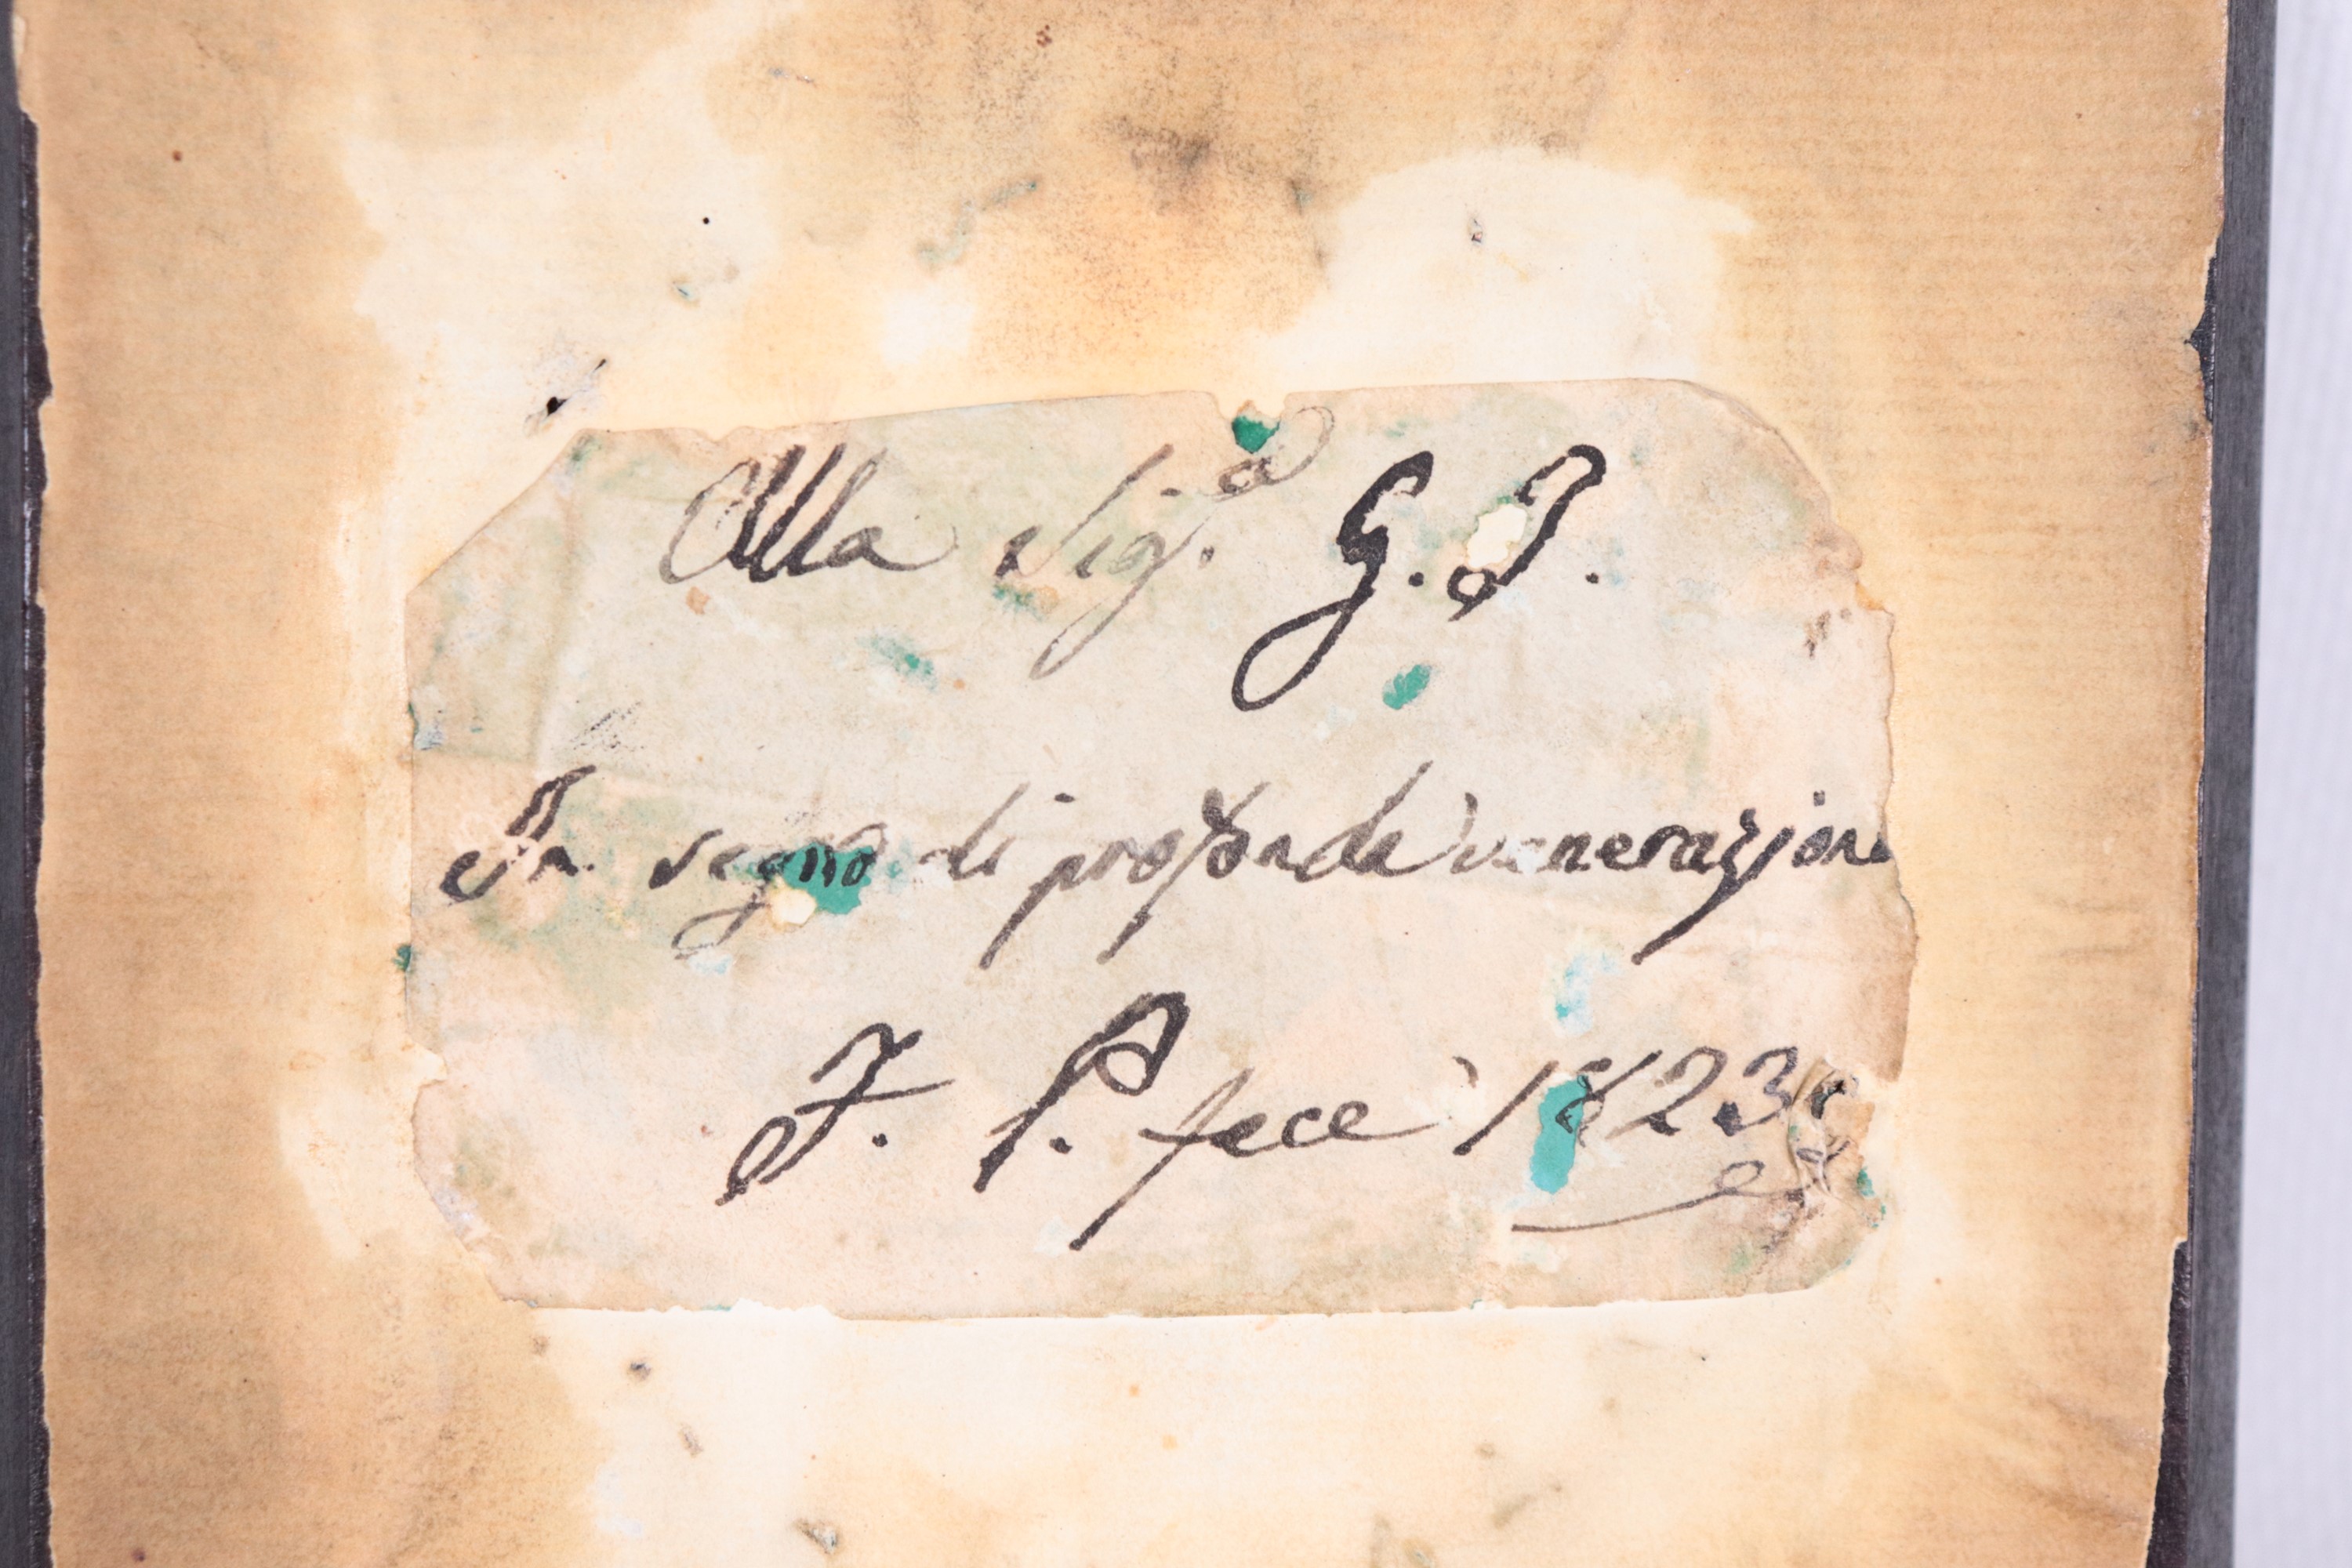 Alla Sig.ª G. P.
In segno di profonda venerazione
F. P. fece 1823